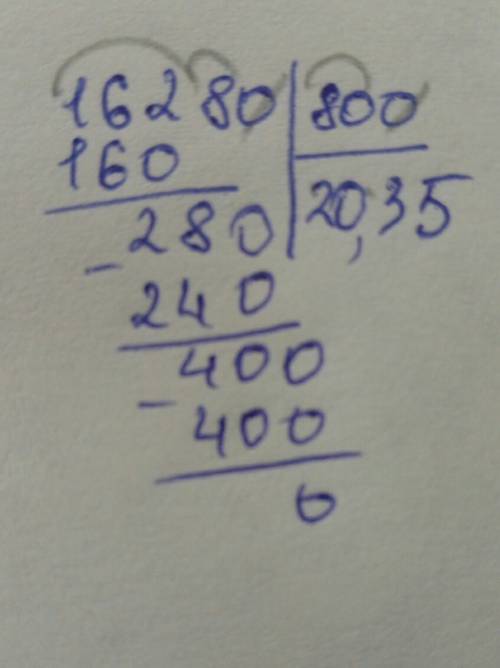 16280 800
160
20,35
- 280
240
- 400
400
0